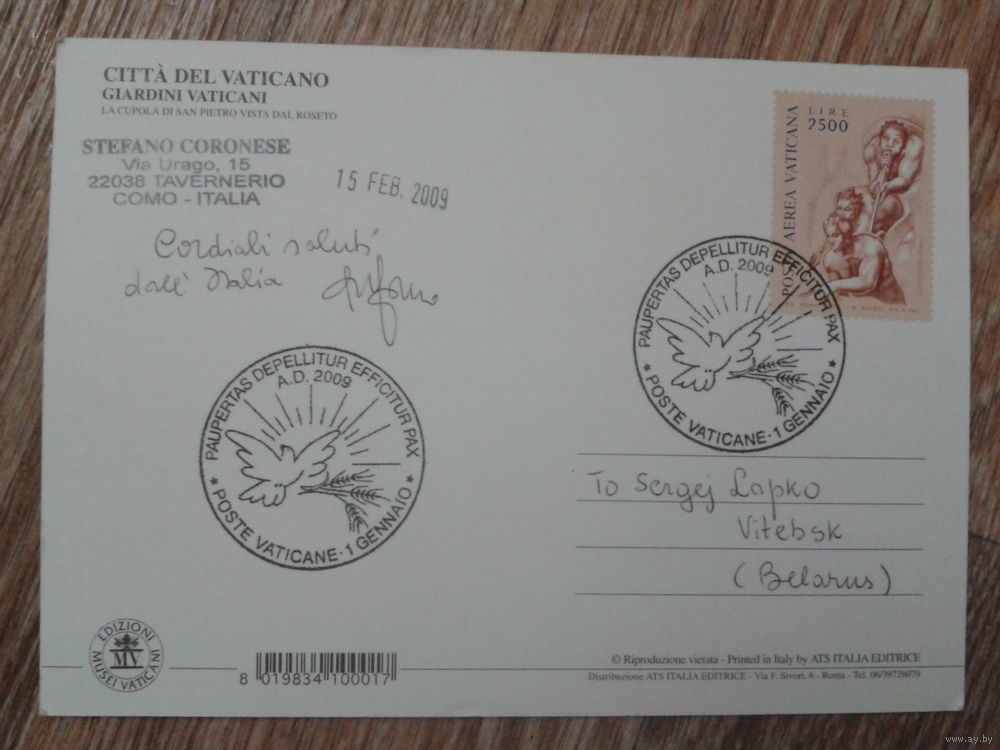 CITTÀ DEL VATICANO
GIARDINI VATICANI
LA CUPOLA DI SAN PIETRO VISTA DAL ROSETO
STEFANO CORONESE
Via Urago, 15
22038 TAVERNERIO
COMO - ITALIA
15 FEB. 2009
Cordiali saluti
dall' Italia
LIRE
2500
POSTA AEREA VATICANA
PAUPERTAS DEPELLITUR EFFICITUR PAX
A.D. 2009
* POSTE VATICANE · 1 GENNAIO *
PAUPERTAS DEPELLITUR EFFICITUR PAX
A.D. 2009
* POSTE VATICANE · 1 GENNAIO *
To Sergej Lapko
Vitebsk
(Belarus)
EDIZIONI
MV
MUSEI VATICANI
8 019834 100017
© Riproduzione vietata - Printed in Italy by ATS ITALIA EDITRICE
Distribuzione ATS ITALIA EDITRICE - Via F. Sivori, 6 - Roma - Tel. 06/39726079
www.ay.by